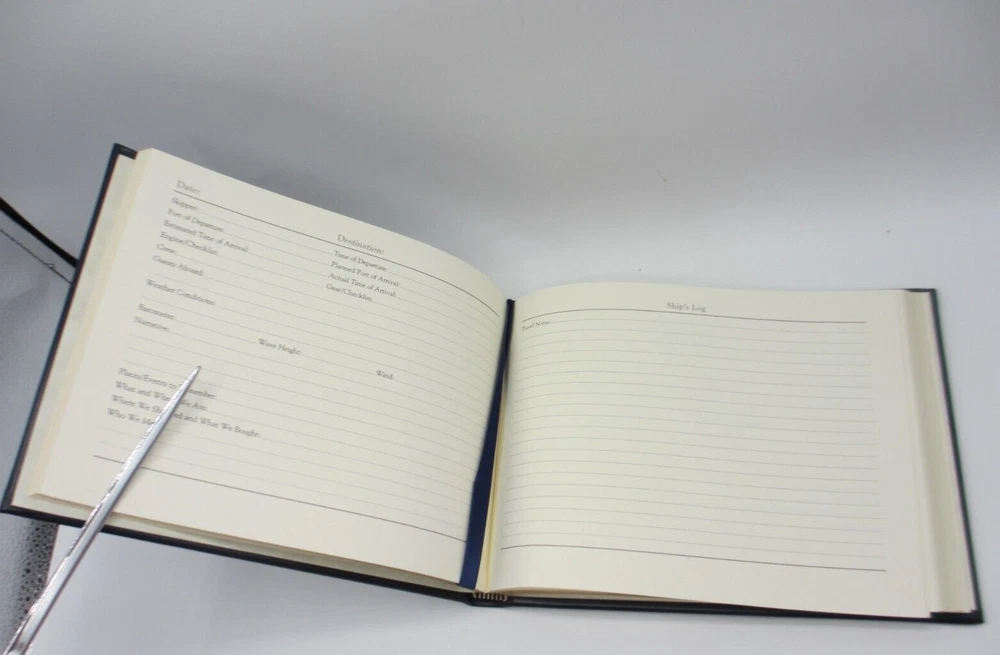 Date:
Destination:
Skipper:
Time of Departure:
Port of Departure:
Planned Port of Arrival:
Estimated Time of Arrival:
Actual Time of Arrival:
Engine/Checklist:
Gear/Checklist:
Crew:
Guests Aboard:
Weather Conditions:
Barometer:
Wave Height:
Wind:
Narrative:
Places/Events to
What and
We Ate:
Where We
and What We Bought:
Who We
Ship's Log
Travel Notes